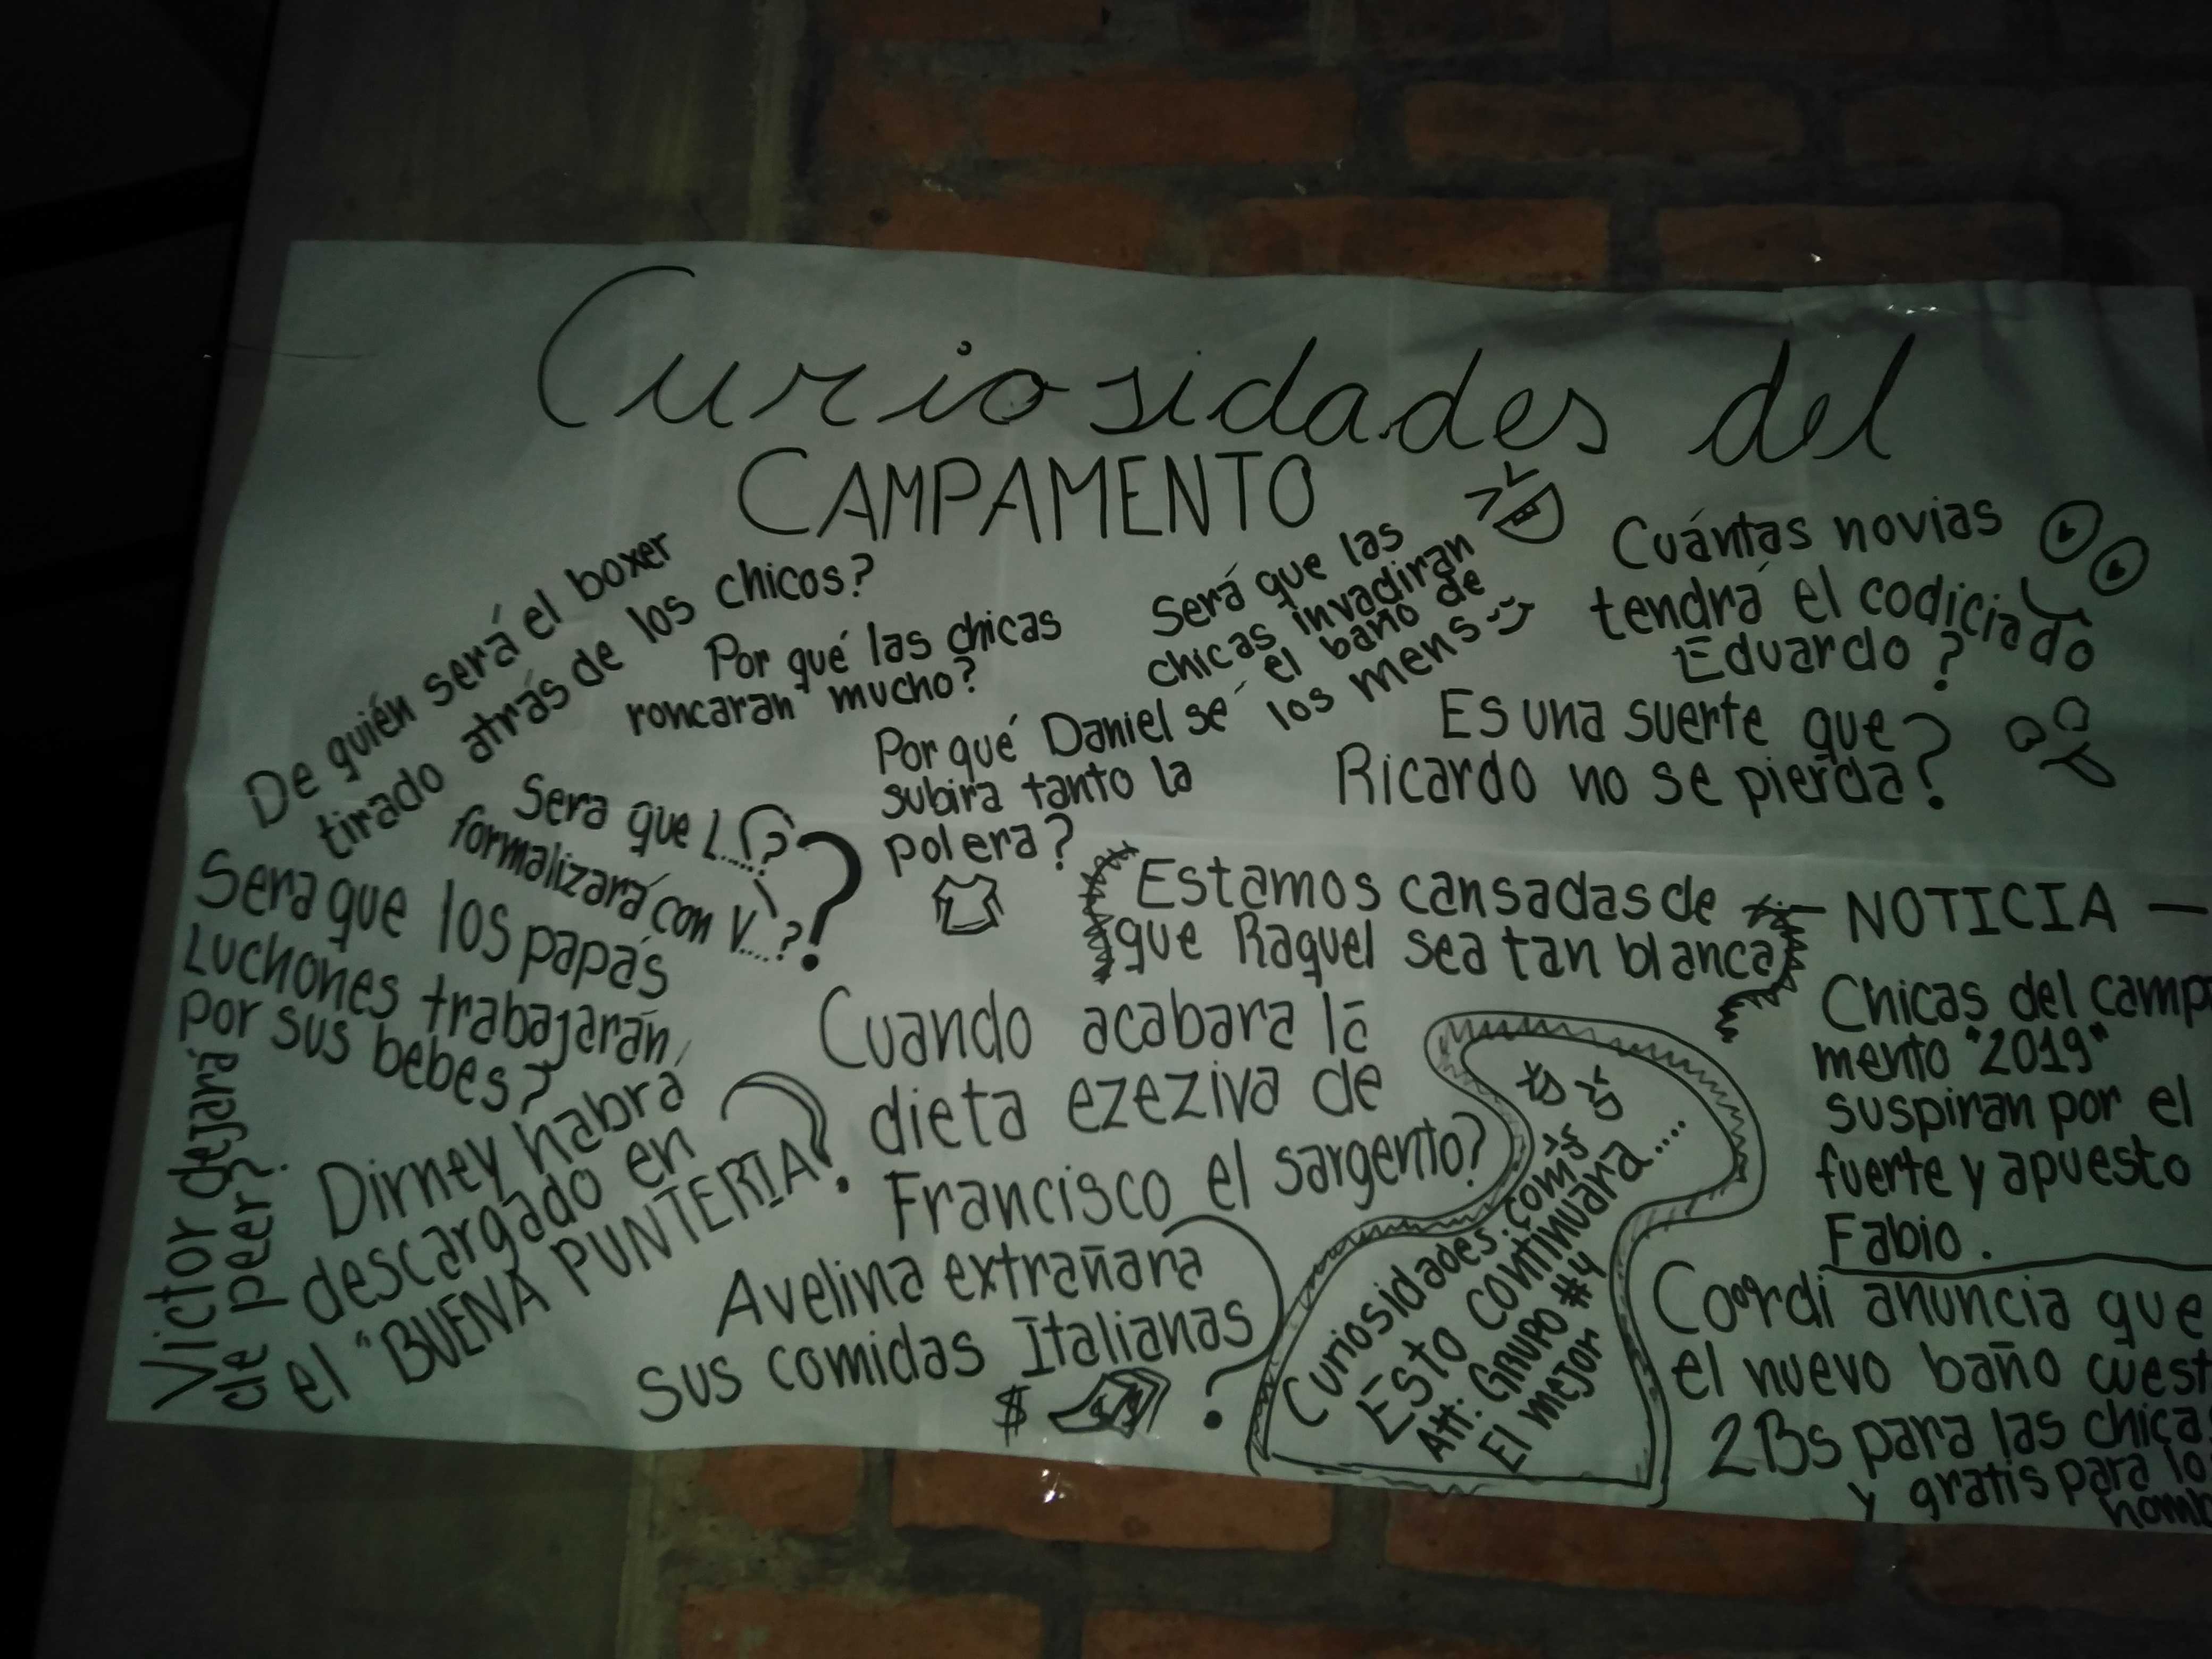 Curiosidades del
CAMPAMENTO
De quién será el boxer
tirado atrás de los chicos?
Por qué las chicas
roncaran mucho?
Será que las
chicas invadiran
el baño de
los mens
Cuántas novias
tendrá el codiciado
Eduardo?
Por qué Daniel se
subira tanto la
polera?
Es una suerte que
Ricardo no se pierda?
Sera que L....?
formalizará con V....?
Sera que los papás
Luchones trabajarán
por sus bebes?
Estamos cansadas de
que Raquel sea tan blanca
NOTICIA
Chicas del camp
mento "2019"
suspiran por el
fuerte y apuesto
Fabio.
Cuando acabara la
dieta ezeziva de
Francisco el sargento?
Victor dejará
de peer?
Dirney habrá
descargado en
el "BUENA PUNTERIA?
Avelina extrañara
sus comidas Italianas
$ ?
Curiosidades.com
Esto continuara....
Att: GRUPO #4
El mejor
Coordi anuncia que
el nuevo baño cuest
2Bs para las chica
y gratis para lo
homb